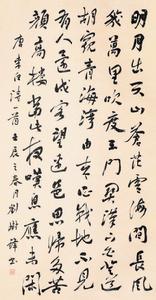 明月出天山蒼茫雲海間長風
幾萬里吹度玉門關漢下白登道
胡窺青海灣由來征戰地不見
有人還戍客望邊色思歸多苦
顏高樓當此夜歎息應未閑
唐李白詩一首壬辰之春月劉書